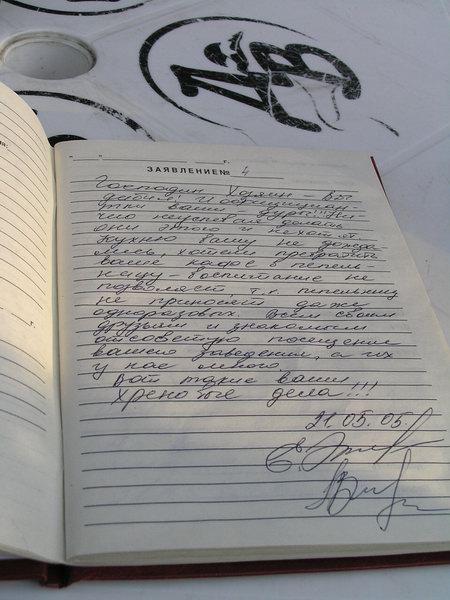 " " г.
ЗАЯВЛЕНИЕ № 4
Господин Хозяин – Вы
дебил! И официант-
тки ваши дуры!!! Ни-
чио неуспевают делать
они этого и не хотят.
Кухню вашу не дожда-
лись хотели превратить
ваше кафе в пепель
ницу – воспитание не
позволяет т.к. пепельниц
не приносят даже
одноразовых. Всем своим
друзьям и знакомым
отсоветую посещение
вашего заведения, а их
у нас много.
Вот такие ваши
хреновые дела!!!
21.05.05.
г.